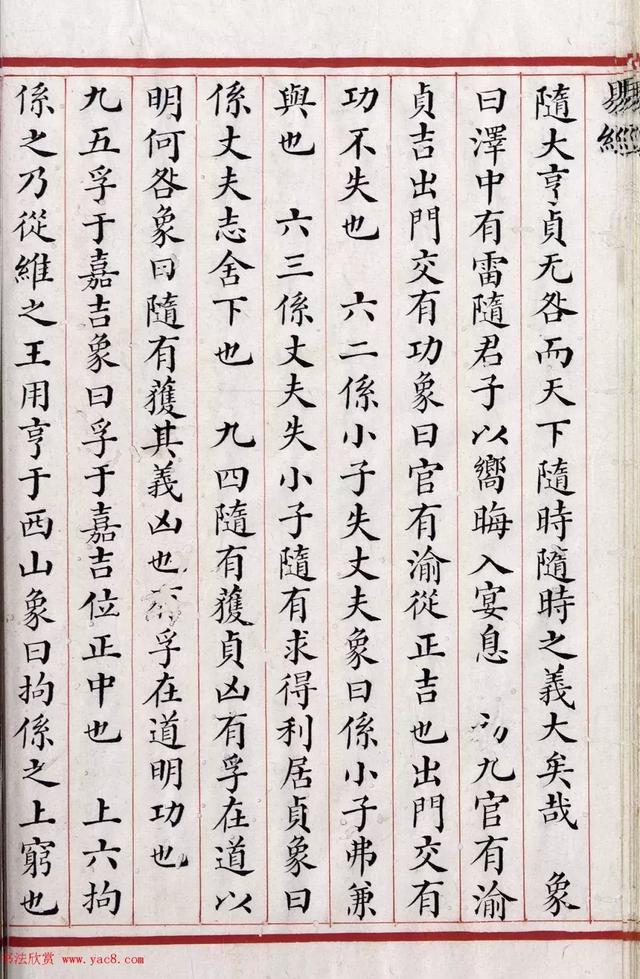 易經
隨大亨貞无咎而天下隨時隨時之義大矣哉 象
曰澤中有雷隨君子以嚮晦入宴息 初九官有渝
貞吉出門交有功象曰官有渝從正吉也出門交有
功不失也 六二係小子失丈夫象曰係小子弗兼
與也 六三係丈夫失小子隨有求得利居貞象曰
係丈夫志舍下也 九四隨有獲貞凶有孚在道以
明何咎象曰隨有獲其義凶也 孚在道明功也
九五孚于嘉吉象曰孚于嘉吉位正中也 上六拘
係之乃從維之王用亨于西山象曰拘係之上窮也
书法欣赏 www.yac8.com